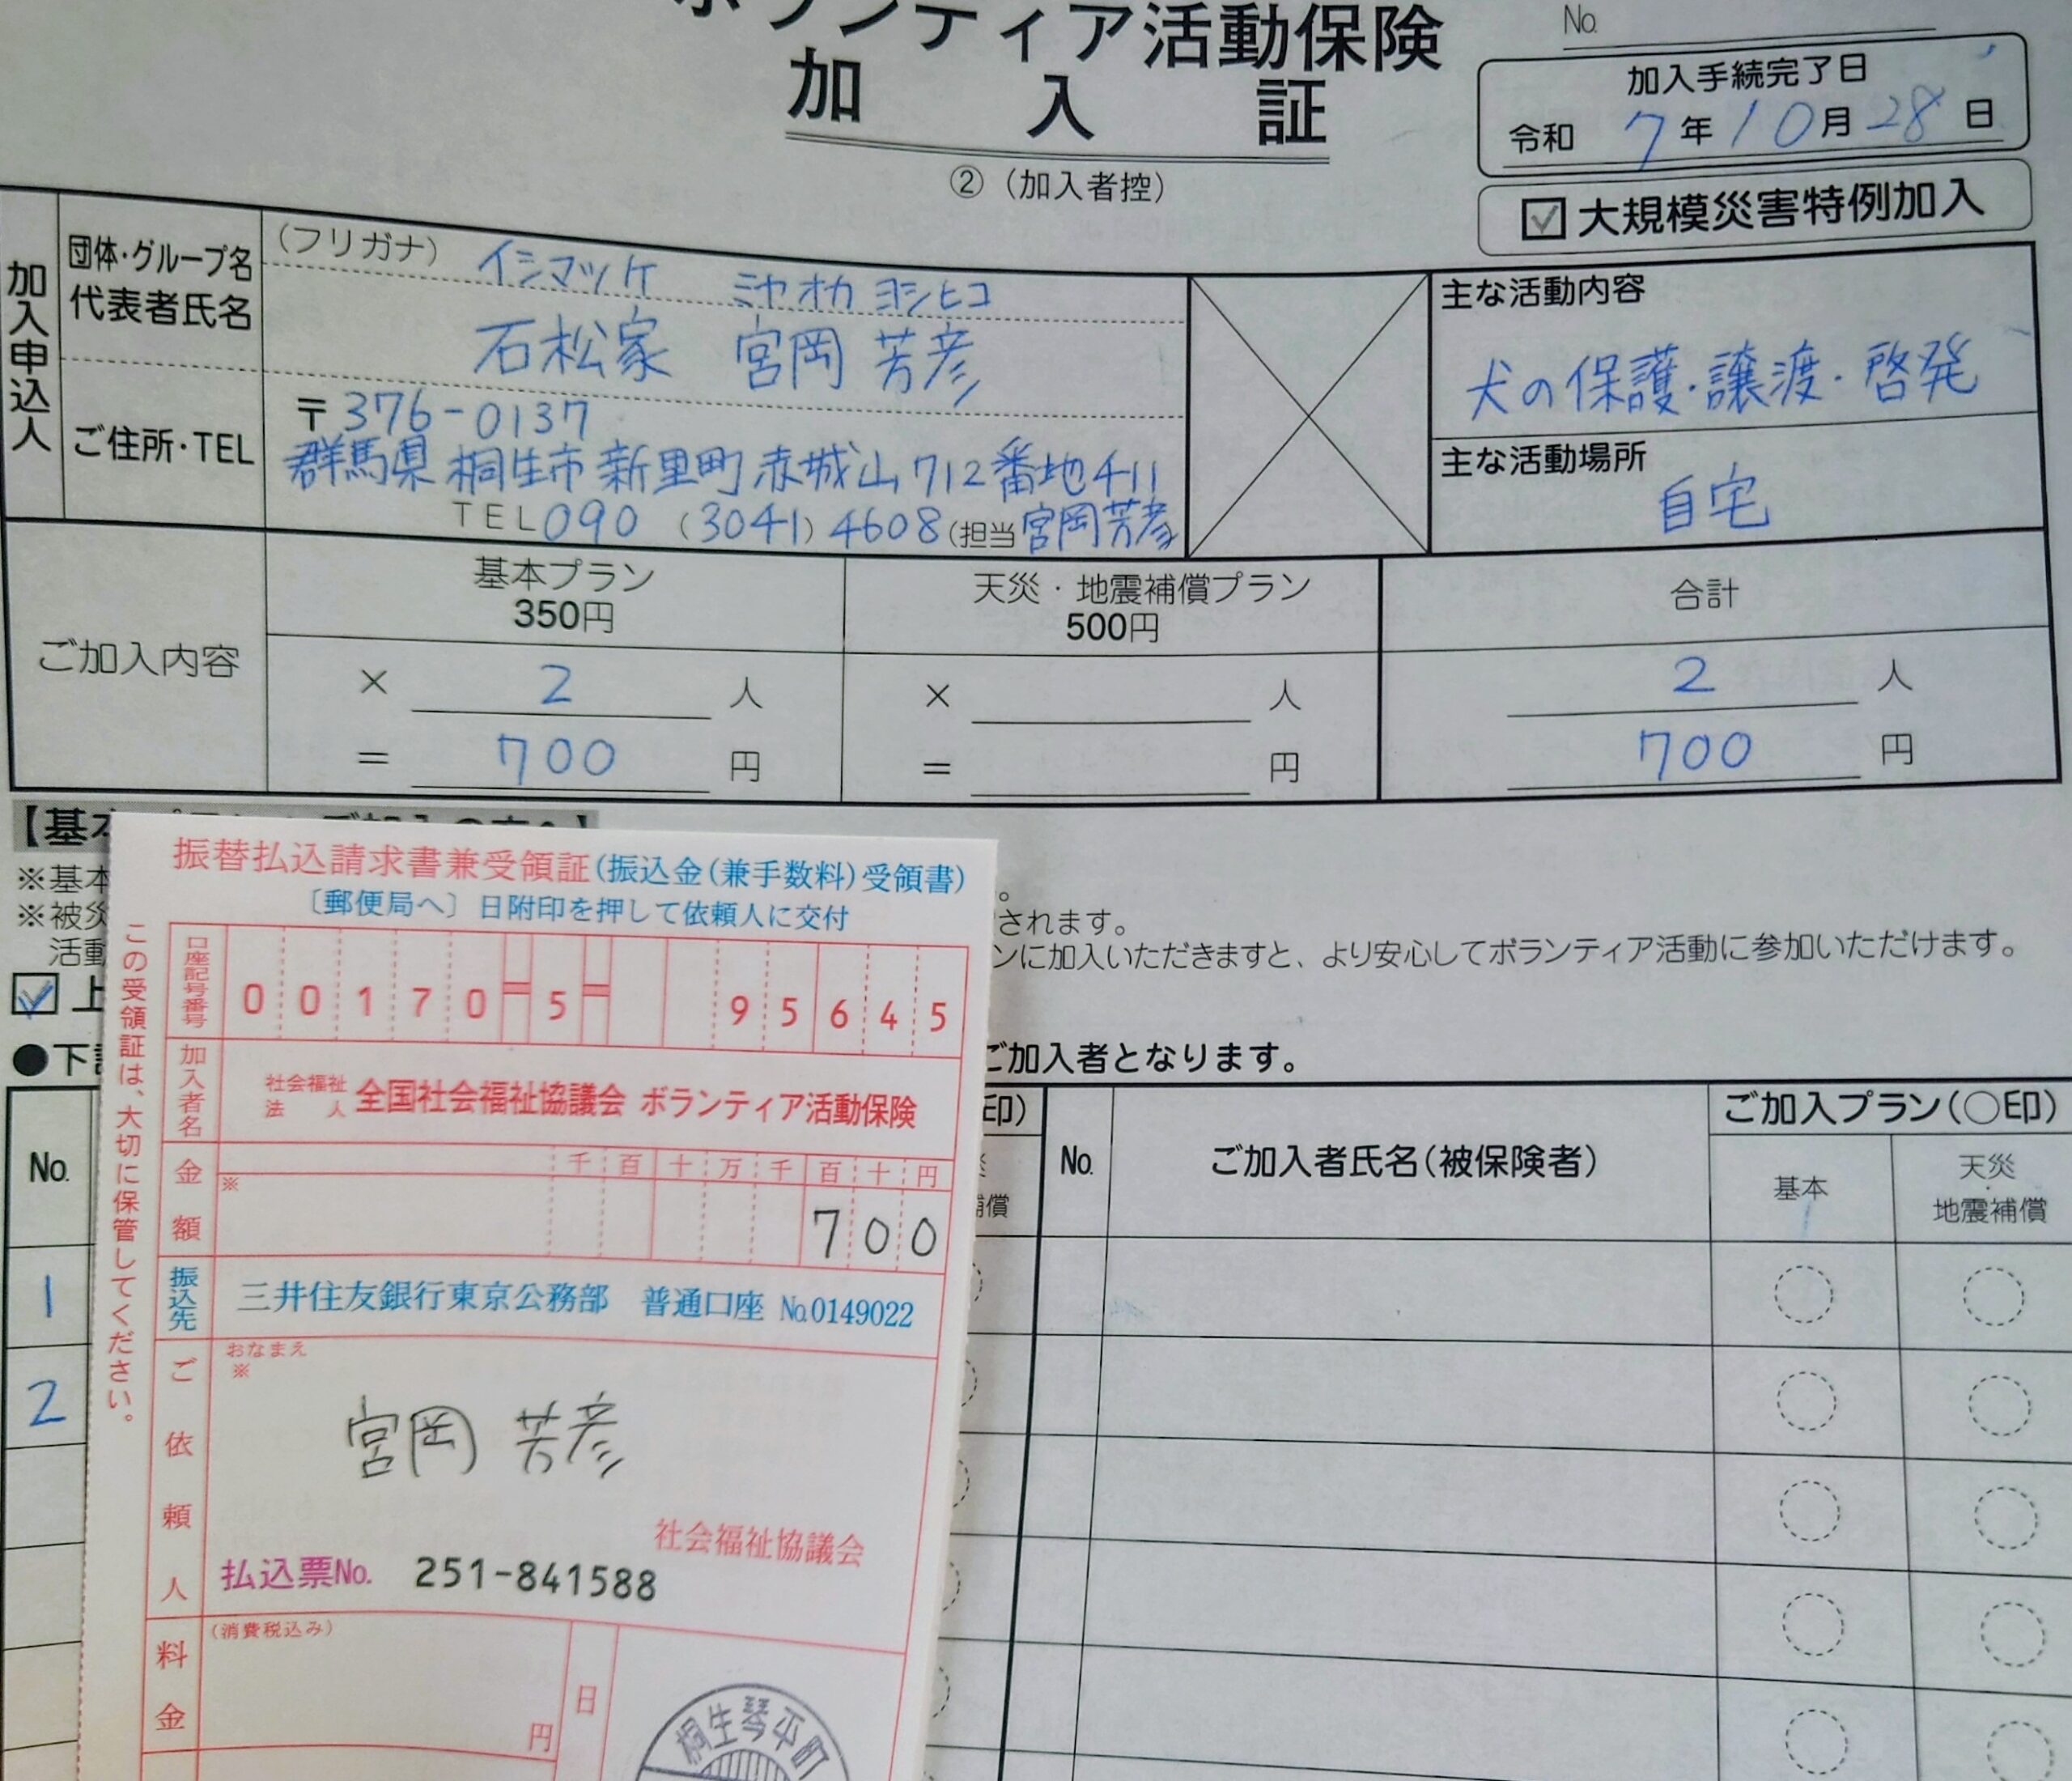 ボランティア活動保険
加入証
②（加入者控）
No.
加入手続完了日
令和 7年10月28日
☑大規模災害特例加入
加入申込人
団体・グループ名
代表者氏名
（フリガナ） イシマツケ ミヤオカ ヨシヒコ
石松家 宮岡 芳彦
ご住所・TEL
〒376-0137
群馬県 桐生市 新里町 赤城山 712番地411
TEL 090 （3041）4608（担当 宮岡芳彦
主な活動内容
犬の保護・譲渡・啓発
主な活動場所
自宅
ご加入内容
基本プラン
350円
× 2 人
= 700 円
天災・地震補償プラン
500円
× 人
= 円
合計
2 人
700 円
【基本
※基本
。
※被災
されます。
活動
ンに加入いただきますと、より安心してボランティア活動に参加いただけます。
☑上
●下記
ご加入者となります。
No.
1
2
印）
補償
No.
ご加入者氏名（被保険者）
ご加入プラン（○印）
基本
天災
・
地震補償
振替払込請求書兼受領証（振込金（兼手数料）受領書）
〔郵便局へ〕日附印を押して依頼人に交付
この受領証は、大切に保管してください。
口座記号番号
00170-5-95645
加入者名
社会福祉法人 全国社会福祉協議会 ボランティア活動保険
金額
千 百 十 万 千 百 十 円
※
700
振込先
三井住友銀行東京公務部 普通口座 No.0149022
ご依頼人
おなまえ
※
宮岡 芳彦
社会福祉協議会
払込票No. 251-841588
料金
（消費税込み）
円
日
桐生琴平町